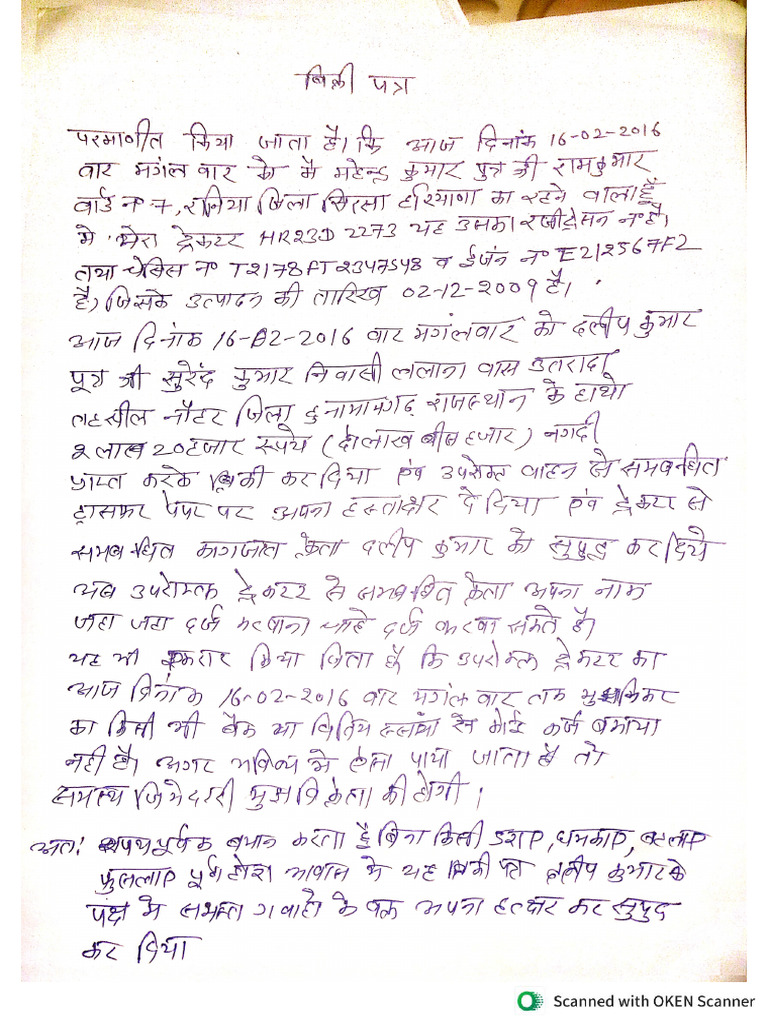 बिक्री पत्र
परमाणीत किया जाता है। कि आज दिनांक 16-02-2016
वार मगंल वार को मै महेन्द्र कुमार पुत्र श्री रामकुमार
वार्ड न० 7, रानिया जिला सिरसा हरियाणा का रहने वाला हूँ
मे मेरा ट्रेक्टर HR23D 2273 यह उसका रजीस्ट्रेसन न० है।
तथा चेसिस न० T2178FT2347548 व ईजंन न० E212567F2
है, जिसके उत्पादन की तारिख 02-12-2009 है।
आज दिनांक 16-02-2016 वार मगंलवार को दलीप कुमार
पूत्र श्री सुरेंद्र कुमार निवासी ललाना वास उतरादा
तहसील नोहर जिला हनुमानगढ राजस्थान के हाथो
2 लाख 20 हजार रूपये (दो लाख बीस हजार) नगदी
प्राप्त करके बिक्री कर दिया एवं उपरोक्त वाहन से समबन्धित
ट्रासफर पेपर पर अपना हस्ताक्षर दे दिया एवं ट्रेकटर से
समबन्धित कागजात क्रेता दलीप कुमार को सुपुद्र कर दिये
अब उपरोक्त ट्रेकटर से समबन्धित क्रेता अपना नाम
जहा जहा दर्ज करवाना चाहे दर्ज करवा सकते है।
यह भी इकरार किया जाता है कि उपरोक्त ट्रेकटर का
आज दिनांक 16-02-2016 वार मगंल वार तक
का किसी भी बैंक या वितिय कोई कर्ज बकाया
नही है। अगर भविष्य मे ऐसा पाया जाता है तो
समस्त जिमेदारी मुझ विक्रेता की होगी।
अत: शपथपूर्वक बयान करता है बिना किसी डराए, धमकाए, बहलाए
फुसलाए पूर्ण होश आवास मे यह बिक्री पत्र दलीप कुमार के
पक्ष मे समस्त गवाहो के अपना हस्ताक्षर कर सुपुद
कर दिया
Scanned with OKEN Scanner